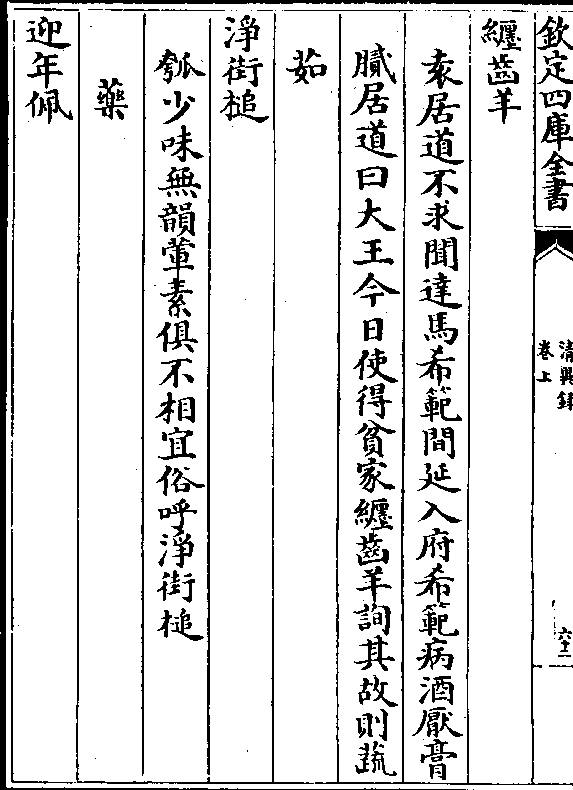 欽定四庫全書
清異録
卷上
六十二
纏齒羊
袁居道不求聞達馬希範間延入府希範病酒厭膏
膩居道曰大王今日使得貧家纏齒羊詢其故則蔬
茹
淨街槌
瓠少味無韻葷素俱不相宜俗呼淨街槌
藥
迎年佩